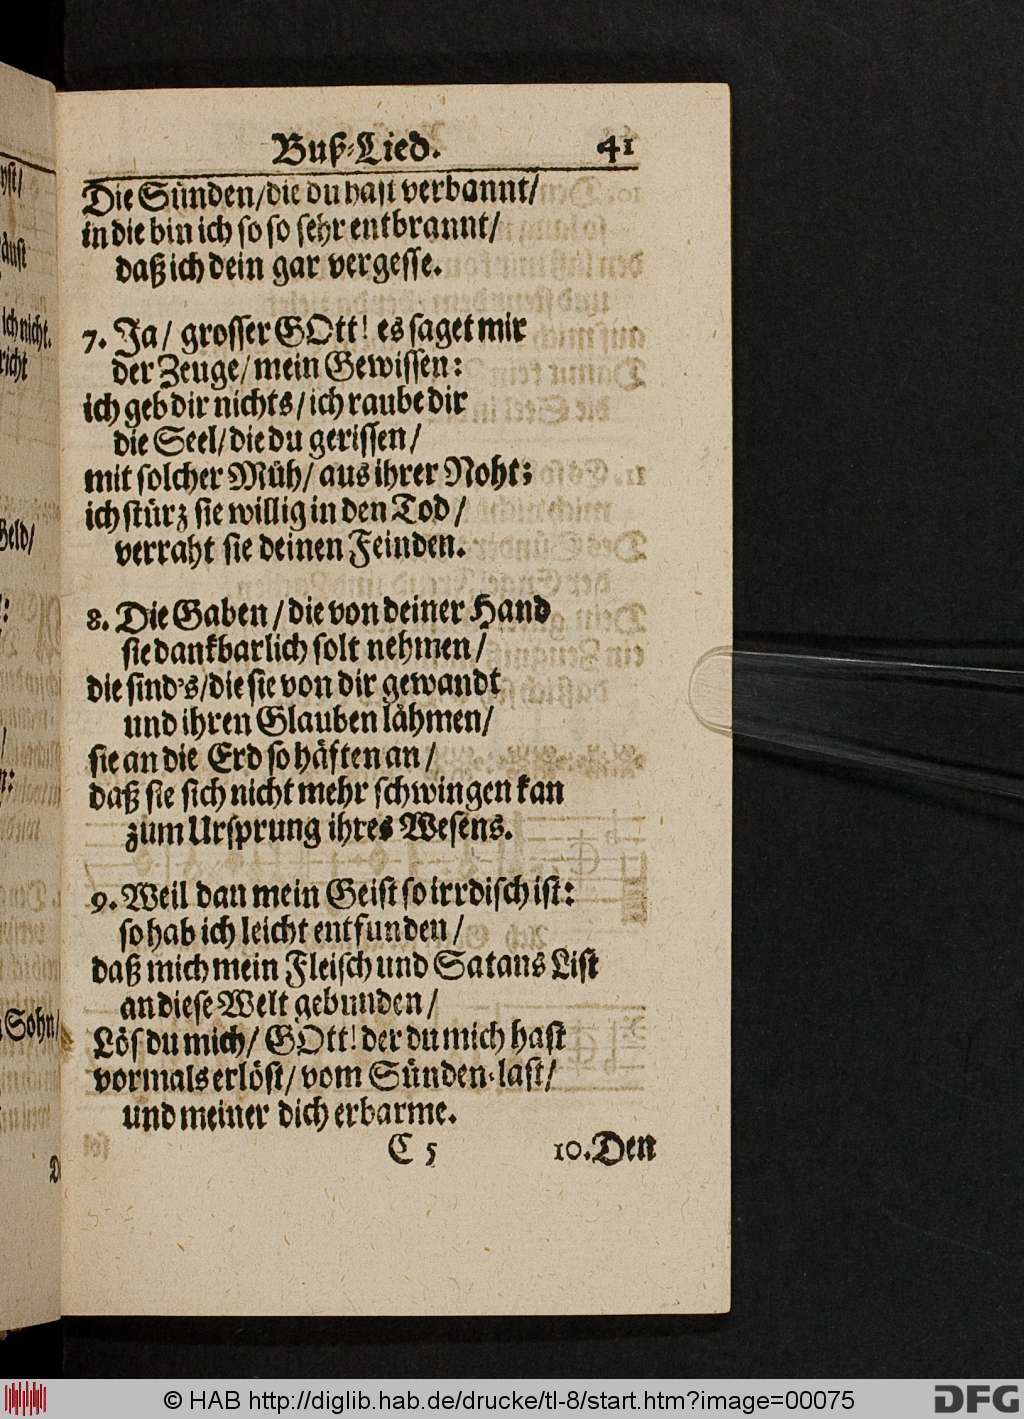 Buß-Lied. 41
Die Sünden/die du hast verbannt/
in die bin ich so so sehr entbrannt/
daß ich dein gar vergesse.
7. Ja/ grosser GOtt! es saget mir
der Zeuge/mein Gewissen:
ich geb dir nichts/ich raube dir
die Seel/die du gerissen/
mit solcher Müh/ aus ihrer Noht;
ich stürz sie willig in den Tod/
verraht sie deinen Feinden.
8. Die Gaben/die von deiner Hand
sie dankbarlich solt nehmen/
die sind's/die sie von dir gewandt
und ihren Glauben lähmen/
sie an die Erd so häften an/
daß sie sich nicht mehr schwingen kan
zum Ursprung ihres Wesens.
9. Weil dan mein Geist so irrdisch ist:
so hab ich leicht entfunden/
daß mich mein Fleisch und Satans List
an diese Welt gebunden/
Lös du mich/ GOtt! der du mich hast
vormals erlöst/vom Sünden-last/
und meiner dich erbarme.
C 5 10. Den
ich nicht.
Geld/
Sohn/
© HAB http://diglib.hab.de/drucke/tl-8/start.htm?image=00075
DFG